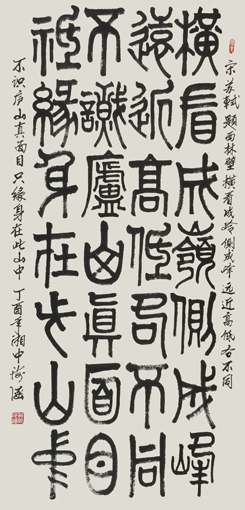 宋苏轼题西林壁横看成岭侧成峰远近高低各不同
橫看成嶺側成峰
遠近高低各不同
不識廬山真面目
祇緣身在此山中
不识庐山真面目只缘身在此山中丁酉年湘中